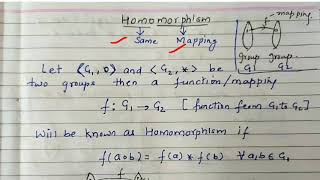 Homomorphism
mapping.
f
Same Mapping
Group Group
G1 G2
Let ⟨G1, o⟩ and ⟨G2, *⟩ be
two groups then a function/mapping
f: G1 → G2 [function from G1 to G2]
Will be known as Homomorphism if
f(aob) = f(a) * f(b) ∀ a,b ∈ G1
f